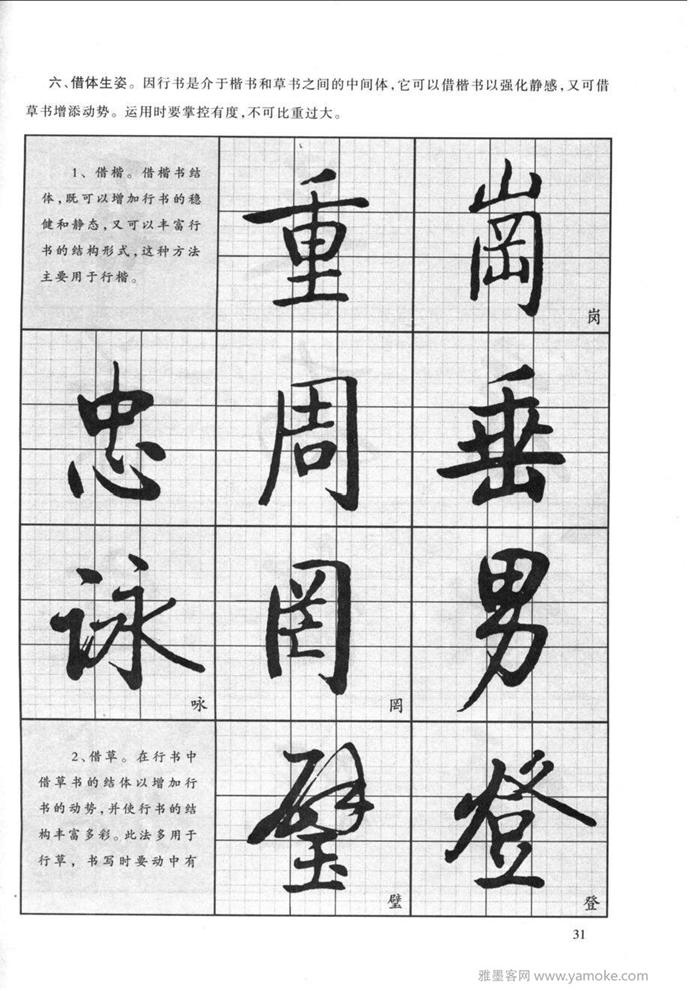 六、借体生姿。因行书是介于楷书和草书之间的中间体，它可以借楷书以强化静感，又可借
草书增添动势。运用时要掌控有度，不可比重过大。
1、借楷。借楷书结
体，既可以增加行书的稳
健和静态，又可以丰富行
书的结构形式，这种方法
主要用于行楷。
重
崗
岗
忠
周
垂
詠
咏
罔
罔
男
2、借草。在行书中
借草书的结体以增加行
书的动势，并使行书的结
构丰富多彩。此法多用于
行草，书写时要动中有
璧
璧
登
登
31
雅墨客网 www.yamoke.com